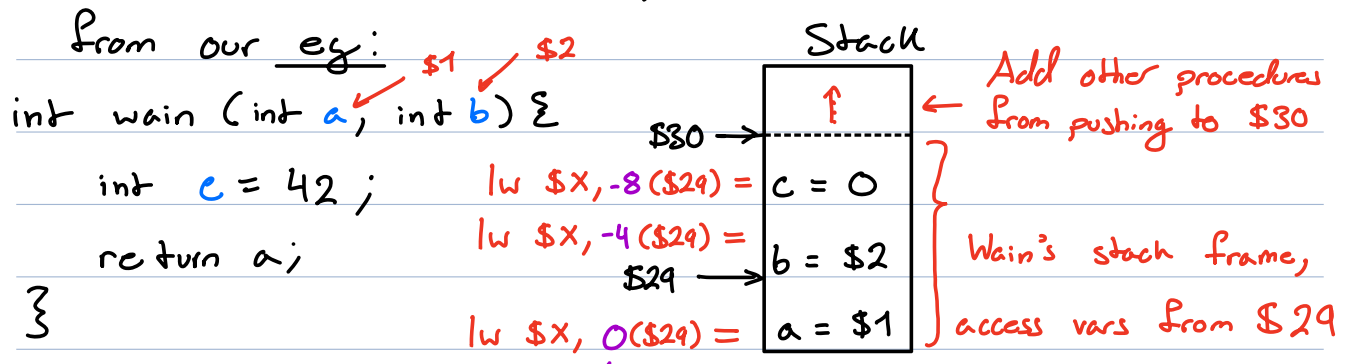 from our eg:
$1
$2
int wain (int a, int b) {
int c = 42;
return a;
}
Stack
$30
lw $X, -8($29) = c = 0
lw $X, -4($29) =
b = $2
$29
lw $X, 0($29) = a = $1
Add other procedures
from pushing to $30
Wain's stack frame,
access vars from $29